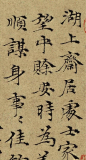 湖上齋居處士家
望中賒安時為善
順謀身事事佳